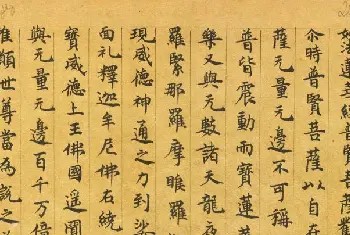 妙法蓮華經普賢菩薩
尒時普賢菩薩以自在
薩无量无邊不可稱
普皆震動而寶蓮華
樂又與无數諸天龍夜
羅緊那羅摩睺羅
現威德神通之力到娑
面礼釋迦牟尼佛右繞
寶威德上王佛國遥聞
與无量无邊百千万億
唯願世尊當為說之